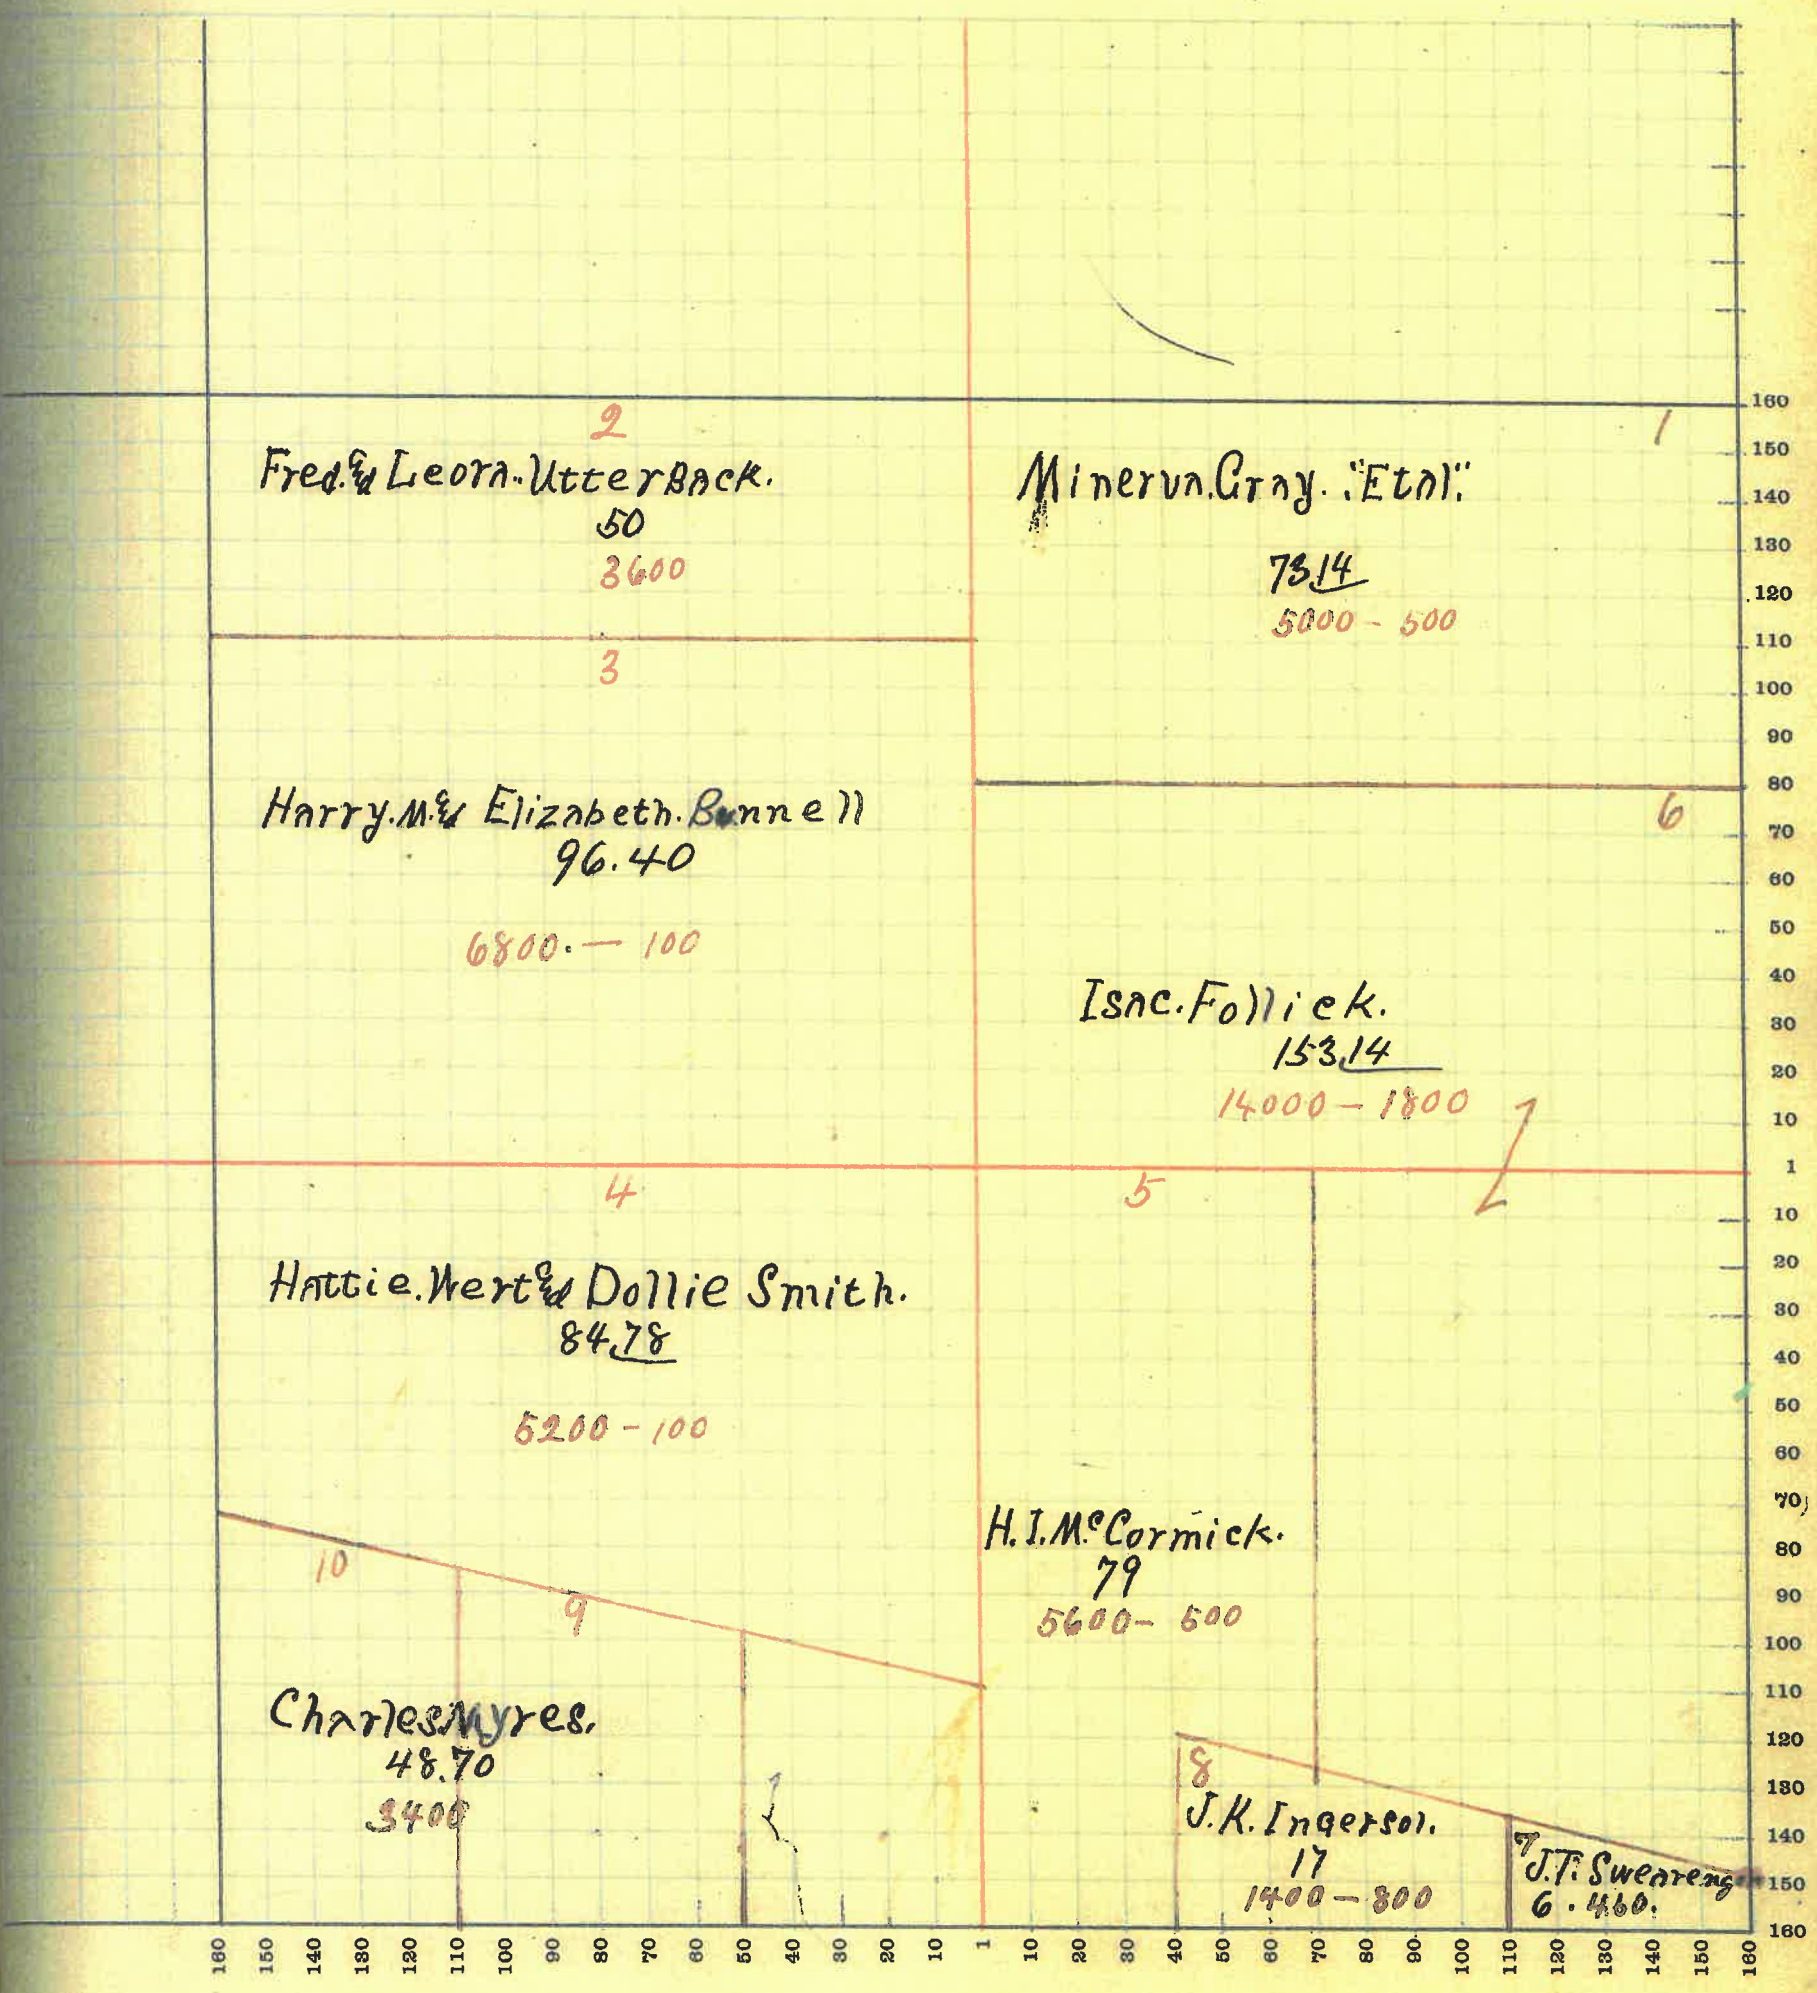 2
Fred. & Leora. UtterBack.
50
3600
1
Minerva. Gray. "Etal".
73.14
5000 - 500
3
Harry. M. & Elizabeth. Bunnell
96.40
6800. — 100
6
Isac. Follick.
153.14
14000 - 1800
4
Hattie. Wert & Dollie Smith.
84.78
5200 - 100
5
H. I. McCormick.
79
5600 - 500
10
9
Charles Myres.
48.70
3400
8
J. K. Ingersol.
17
1400 - 800
7
J. T. Swearengen
6.460.
160
150
140
130
120
110
100
90
80
70
60
50
40
30
20
10
1
10
20
30
40
50
60
70
80
90
100
110
120
130
140
150
160
160 150 140 130 120 110 100 90 80 70 60 50 40 30 20 10 1 10 20 30 40 50 60 70 80 90 100 110 120 130 140 150 160